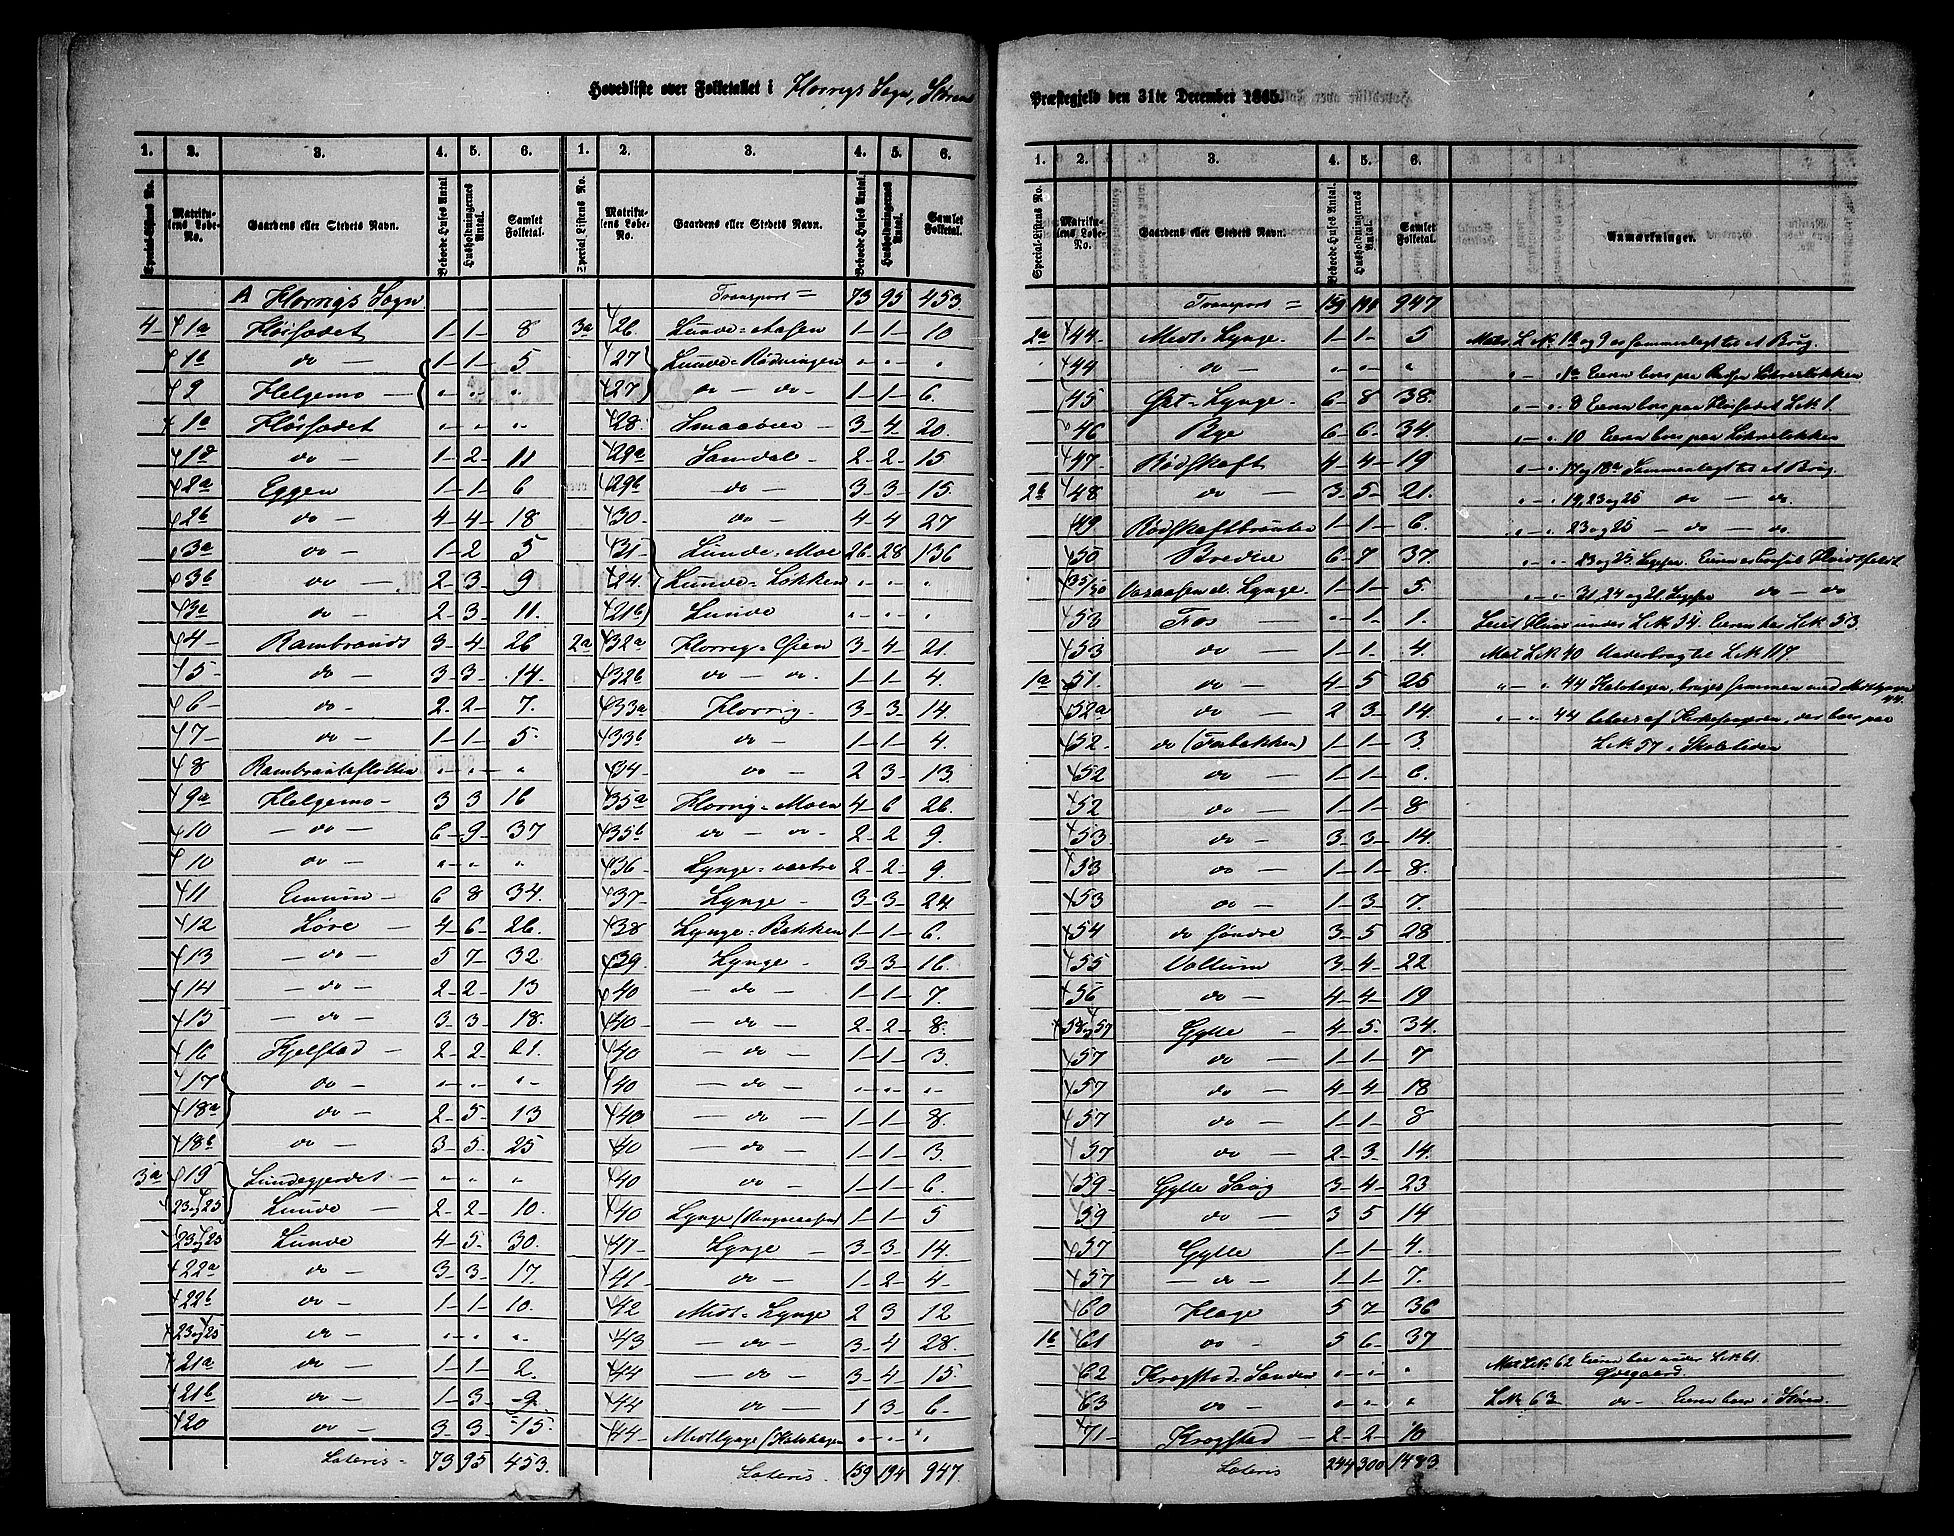 Hovedliste over Folketallet i Horrigs Sogn, Støren
Præstegjeld den 31te December 1865.
1. 2. 3. 4. 5. 6. 1. 2. 3. 4. 5. 6.
Special-Listens No. Matrikulens Løbe-No. Gaardens eller Stedets Navn. Beboede Huses Antal. Husholdningernes Antal. Samlet Folketal. Special-Listens No. Matrikulens Løbe-No. Gaardens eller Stedets Navn. Beboede Huses Antal. Husholdningernes Antal. Samlet Folketal.
A Horrigs Sogn
4 1a Høifødet 1 1 8
1b do 1 1 5
9 Helgemo " " "
1a Høifødet " " "
1d do 1 2 11
2a Eggen 1 1 6
2b do 4 4 18
3a do 1 2 5
3b do 2 3 9
3a do 2 3 11.
4 Rambraods 3 4 26
5 do 3 3 14.
6 do 2 2 7.
7 do 1 1 5.
8 " " "
9a Helgemo 3 3 16
10 do 6 9 37
10 do " " "
11 6 8 34.
12 Løre 4 6 26.
13 do 5 7 32
14 do 2 2 13
15 do 3 3 18.
16 Kjelstad 2 2 21.
17 do " " "
18a do 2 5 13
18b do 3 5 25
3a 19 Lundegjerdet " " "
23 og 25 Lunde 2 2 10.
23 og 25 Lunde 4 5 30.
22a do 3 3 17.
22b do 1 1 10.
23 og 25 do " " "
21a do 1 1 2.
21b do 1 3 9.
20 do 3 3 15.
Lateris 73 95 453.
Transport = 73 95 453.
3a 26 Lunde-Aasen 1 1 10
27 Lunde-Rødningen " " "
27 do do 1 1 6.
28 3 4 20.
29a Samdal 2 2 15
29b do 3 3 15.
30 do 4 4 27
31 Lunde-Moe 26 28 136
24 Lunde-Løkken " " "
21b Lunde " " "
2a 32a Horrig-Øien 3 4 21.
32b do do 1 1 4.
33a Horrig 3 3 14.
33b do 1 1 4.
34 do 2 3 13.
35a Horrig-Moen 4 6 26.
35b do do 2 2 9.
36 Lynge-vestre 2 2 9.
37 Lynge 3 3 24.
38 Lynge-Bakken 1 1 6.
39 Lynge 3 3 16.
40 do 1 1 7.
40 do 2 2 8.
40 do 1 1 3.
40 do " " "
40 do 1 1 8.
40 do 1 1 3.
40 do 1 1 6.
40 Lynge 1 1 5
41 Lynge 3 3 14.
41 do 1 2 4
42 Midt-Lynge 2 3 12
43 do 3 4 28.
44 do 3 4 15.
44 do 1 3 6.
44 Midtlynge (Halshagen " " "
Lateris 159 194 947.
1. 2. 3. 4. 5. 6.
Special-Listens No. Matrikulens Løbe-No. Gaardens eller Stedets Navn. Beboede Huses Antal. Husholdningernes Antal. Samlet Folketal. Anmærkninger.
Transport = 159 194 947
2a 44 Midt-Lynge 1 1 5 Mat. L.N. 1a og 9 er sammenlagt til et Brug.
44 do " " "
45 Øst-Lynge 6 8 38. 8 Eieren boer paa Høifødet L.N. 1.
46 Bye 6 6 34 10 Eieren boer paa
47 Rødskaft 4 4 19 17 og 18a Sammenlagt til et Brug.
2b 48 do 3 5 21. 19, 23 og 25 do do
49 1 1 6. 23 og 25 do do
50 Bredlie 6 7 37.
35/30 1 1 5. 31, 24 og 21 do do
53 Fos " 1 1.
53 do 1 1 4 Mat L.N. 40 Underbrug til L.N. 117.
1a 51. do 4 5 25 44 Halshagen, bruges sammen med
52a do 2 3 14. 44 beboes af der boer paa
52 do (Fosbakken) 1 1 3. L.N. 57
52 do 1 1 6.
52 do 1 1 8
53 do 3 3 14.
53 do 1 1 8.
53 do 1 3 7.
54 do søndre 3 5 28
55 Vollum 3 4 22
56 do 4 4 19
58 og 57 Gylle 4 5 34.
57 do 1 1 7
57 do 4 4 18
57 do 1 1 8
57 do 2 3 14.
59 Gylle Saug 3 4 23
59 do 3 5 14
57 Gylle 1 1 4.
57 do 1 1 7.
60 Hage 5 7 36
1b 61 do 5 6 37
62 Krogstad-Sanden " " " Mat L.N. 62 Eieren boer under L.N. 61.
63 do " " " L.N. 63 do Eieren boer i Støren.
71 Krogstad 2 2 10
Lateris 244 300 1483